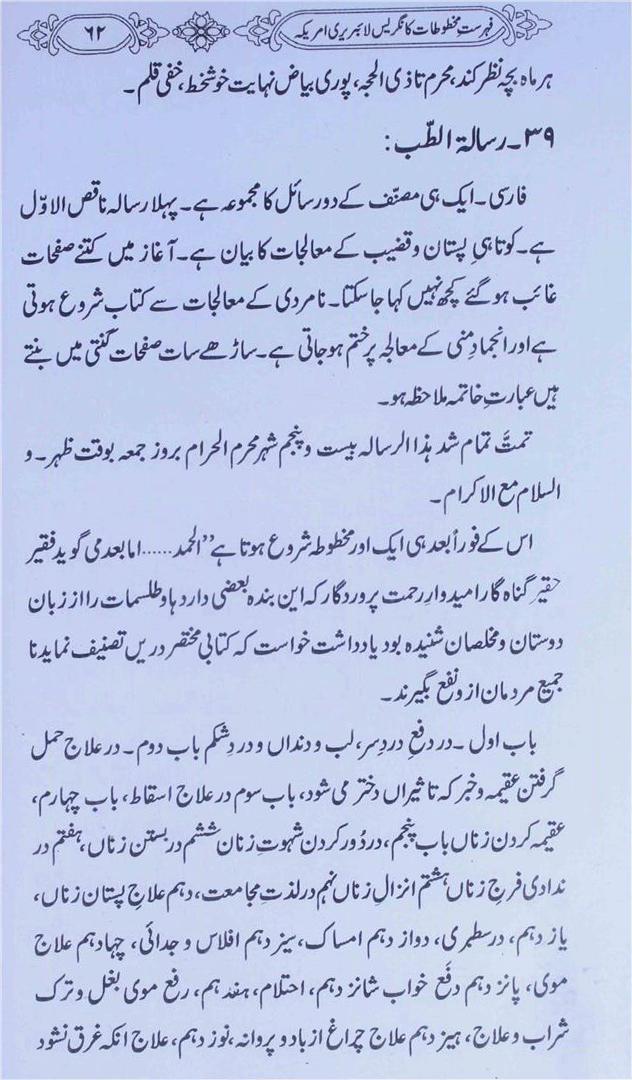 فہرستِ مخطوطات کانگریس لائبریری امریکہ
۶۲
ہر ماہ بچہ نظر کند، محرم تا ذی الحجہ، پوری بیاض نہایت خوشخط، خفی قلم۔
۳۹۔ رسالۃ الطّب:
فارسی۔ ایک ہی مصنّف کے دو رسائل کا مجموعہ ہے۔ پہلا رسالہ ناقص الاوّل
ہے۔ کوتاہیِ پستان و قضیب کے معالجات کا بیان ہے۔ آغاز میں کتنے صفحات
غائب ہو گئے کچھ نہیں کہا جا سکتا۔ نامردی کے معالجات سے کتاب شروع ہوتی
ہے اور انجمادِ منی کے معالجہ پر ختم ہو جاتی ہے۔ ساڑھے سات صفحات گنتی میں بنتے
ہیں عبارتِ خاتمہ ملاحظہ ہو۔
تمتَّ تمام شد ہذا الرسالہ بیست و پنجم شہر محرم الحرام بروز جمعہ بوقت ظہر۔ و
السلام مع الاکرام۔
اس کے فوراً بعد ہی ایک اور مخطوطہ شروع ہوتا ہے ”الحمد......اما بعد می گوید فقیر
حقیر گناہ گار امیدوارِ رحمت پروردگار کہ این بندہ بعضی داردہا و طلسمات را از زبان
دوستان و مخلصان شنیدہ بود یادداشت خواست کہ کتابی مختصر دریں تصنیف نماید نا
جمیع مردمان ازو نفع بگیرند۔
باب اول۔ در دفعِ دردِ سر، لب و دنداں و دردِ شکم باب دوم۔ در علاج حمل
گرفتن عقیمہ و خبر کہ تاثیراں دختر می شود، باب سوم در علاج اسقاط، باب چہارم،
عقیمہ کردن زناں باب پنجم، در دُور کردن شہوتِ زنان ششم در بستن زناں، ہفتم در
ندادی فرجِ زناں ہشتم انزالِ زناں نہم در لذتِ مجامعت، دہم علاجِ پستان زناں،
یاز دہم، در سطبری، دواز دہم امساک، سیز دہم افلاس و جدائی، چہادہم علاج
موی، پانز دہم دفَع خواب شانز دہم، احتلام، ہفد ہم، رفع موی بغل و ترک
شراب و علاج، ہیز دہم علاج چراغ از باد و پروانہ، نوز دہم، علاج انکہ غرق نشود